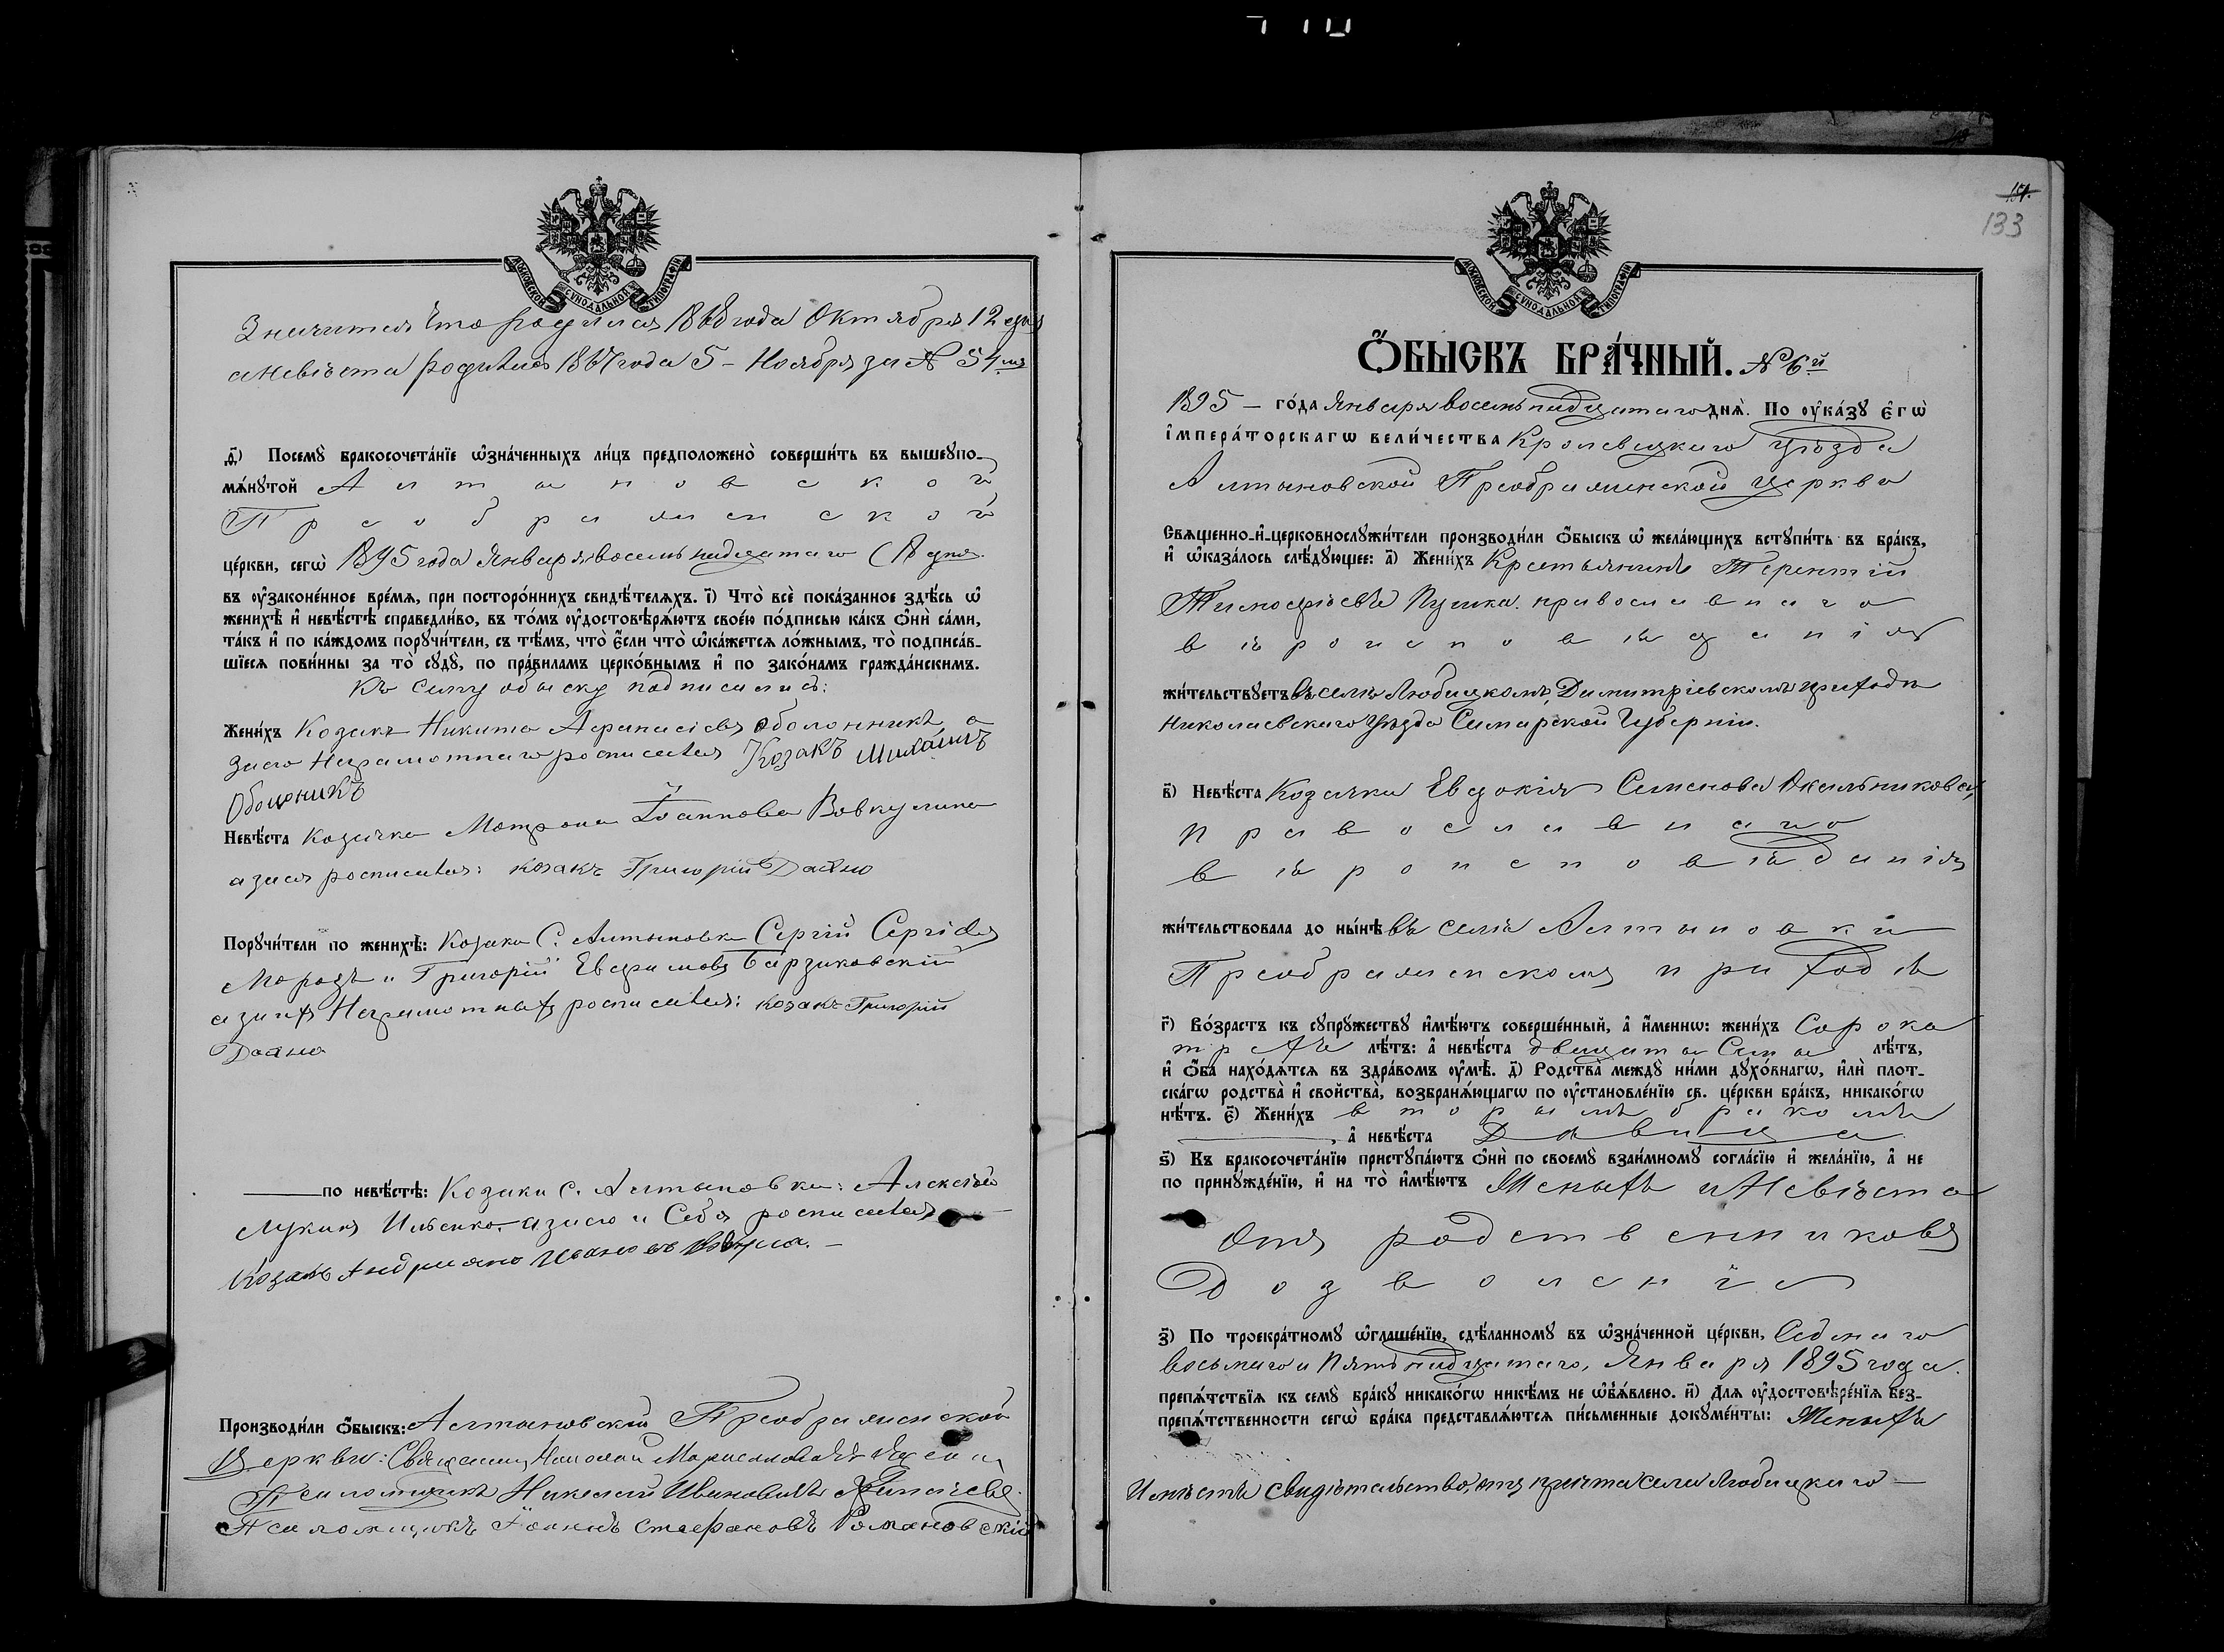 МОСКОВСКОЙ СѴНОДАЛЬНОЙ ТИПОГРАФІИ
Значится что родился 1868 года Октября 12 дня
а невѣста родилась 1867 года 5 – Ноября за № 54 мъ
д҃) Посемꙋ̀ бракосочета́нїе ѡ҆зна́ченныхъ ли́цъ предположено̀ соверши́ть въ вышеꙋпо-
мѧ́нꙋтой Алтыновской
Преображенской
це́ркви, сегѡ̀ 1895 года Января восемьнадцатаго (18 дня
въ ᲂу҆зако́ненное вре́мѧ, при посторо́ннихъ свидѣ́телѧхъ. і҃) Что̀ всѐ пока́занное здѣ́сь ѡ҆
женихѣ̀ и҆ невѣ́стѣ справедли́во, въ то́мъ ᲂу҆достовѣрѧ́ютъ свое́ю по́дписью ка́къ ѻ҆нѝ са́ми,
та́къ и҆ по ка́ждомъ порꙋчи́тели, съ тѣ́мъ, что̀ є҆́сли что̀ ѡ҆ка́жетсѧ ло́жнымъ, то̀ подписа́в-
шїесѧ пови́нны за то̀ сꙋдꙋ̀, по пра́виламъ церко́внымъ и҆ по зако́намъ гражда́нскимъ.
Къ сему обыску подписались:
Жени́хъ Козакъ Никита Афанасіевъ Оболонникъ а
за него неграмотнаго росписался Козакъ Михаилъ
Оболоникъ
Невѣ́ста Козачка Мотрона Іоаннова Вовкулина
а за ея росписался: козакъ Григорій
Порꙋчи́тели по женихѣ̀: Козаки С. Алтыновки Сергій Сергіевъ
Морозъ и Григорій Евфимовъ Барзиковскій
а за ихъ Неграмотныхъ росписался: козакъ Григорій
по невѣ́стѣ: Козаки с. Алтыновки: Алексѣй
Лукинъ Ильенко а за его и Себя росписался
Козакъ Андриано Иванов
Производи́ли ѻ҆́быскъ: Алтыновской Преображенской
Церкви: Священникъ Николай
Псаломщикъ Николай Ивановичъ
Псаломщикъ Іоаннъ Стефановъ Романовскій
154.
133
МОСКОВСКОЙ СѴНОДАЛЬНОЙ ТИПОГРАФІИ
Ѻ҆́БЫСКЪ БРА́ЧНЫЙ. № 6й
1895 – го́да Января восемьнадцатаго днѧ̀. По ᲂу҆ка́зꙋ є҆гѡ̀
і҆мпера́торскагѡ вели́чества Кролевецкаго уѣзда
Алтыновской Преображенской церкви
Свѧще́нно-и҆-церковнослꙋжи́тели производи́ли ѻ҆́быскъ ѡ҆ жела́ющихъ встꙋпи́ть въ бра́къ,
и҆ ѡ҆каза́лось слѣ́дꙋющее: а҃) Жени́хъ Крестьянинъ Терентій
Тимофѣевъ Пушка. православнаго
вѣроисповѣданія
жи́тельствꙋетъ въ селѣ Любицкомъ, Димитріевскомъ приходѣ
Николаевскаго Уѣзда Самарской Губерніи.
в҃) Невѣ́ста Козачка Евдокія Семенова
православнаго
вѣроисповѣданія
жи́тельствовала до ны́нѣ въ селѣ Алтыновкѣ
Преображенскомъ приходѣ
г҃) Во́зрастъ къ сꙋпрꙋ́жествꙋ и҆мѣ́ютъ соверше́нный, а҆ и҆́меннѡ: жени́хъ Сорока
трехъ лѣ́тъ: а҆ невѣ́ста двадцати Семи лѣ́тъ,
и҆ ѻ҆́ба нахо́дѧтсѧ въ здра́вомъ ᲂу҆мѣ̀. д҃) Родства̀ междꙋ̀ ни́ми дꙋхо́внагѡ, и҆лѝ плот-
ска́гѡ родства̀ и҆ свойства̀, возбранѧ́ющагѡ по ᲂу҆становле́нїю св. це́ркви бра́къ, никако́гѡ
нѣ́тъ. є҃) Жени́хъ вторымъ бракомъ
, а҆ невѣ́ста Дѣвица
ѕ҃) Къ бракосочета́нїю пристꙋпа́ютъ ѻ҆нѝ по своемꙋ̀ взаи́мномꙋ согла́сїю и҆ жела́нїю, а҆ не
по принꙋжде́нїю, и҆ на то̀ и҆мѣ́ютъ Женихъ и Невѣста
Отъ родственниковъ
Дозволеніе
з҃) По троекра́тномꙋ ѡ҆глаше́нїю, сдѣ́ланномꙋ въ ѡ҆зна́ченной це́ркви, Седмаго
восьмаго и Пятьнадцатаго, Января 1895 года.
препѧ́тствїѧ къ семꙋ̀ бра́кꙋ никако́гѡ никѣ́мъ не ѡ҆б̾ѧ́влено. и҃) Длѧ ᲂу҆достовѣре́нїѧ без-
препѧ́тственности сегѡ̀ бра́ка представлѧ́ютсѧ пи́сьменные докꙋме́нты: Женихъ
Имѣетъ свидѣтельство, отъ причта села Любицкаго –